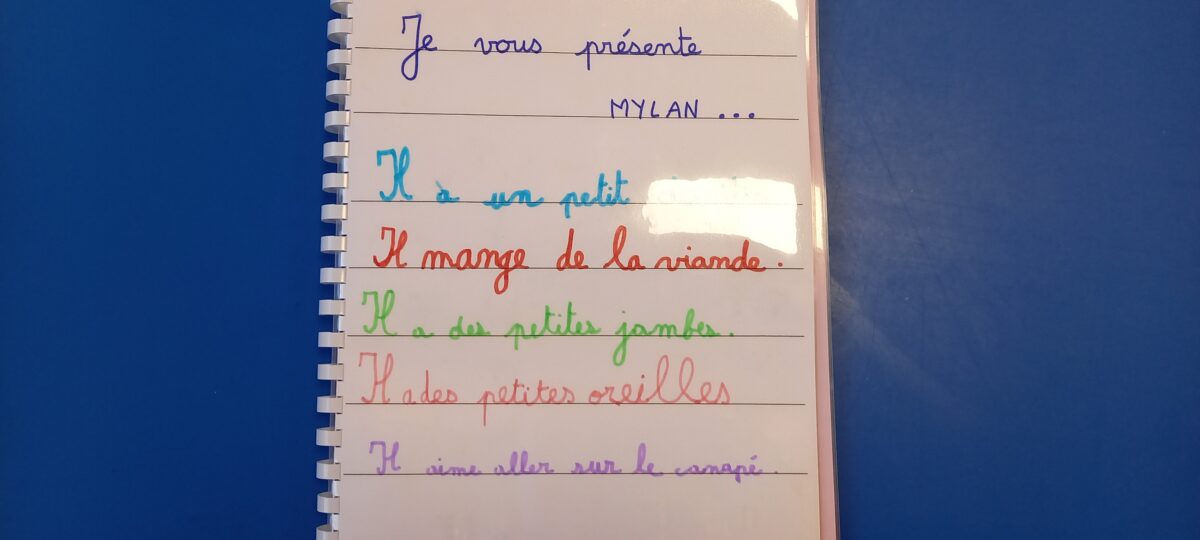 Je vous présente
MYLAN ...
Il à un petit
Il mange de la viande.
Il a des petites jambes.
Il a des petites oreilles
Il aime aller sur le canapé.